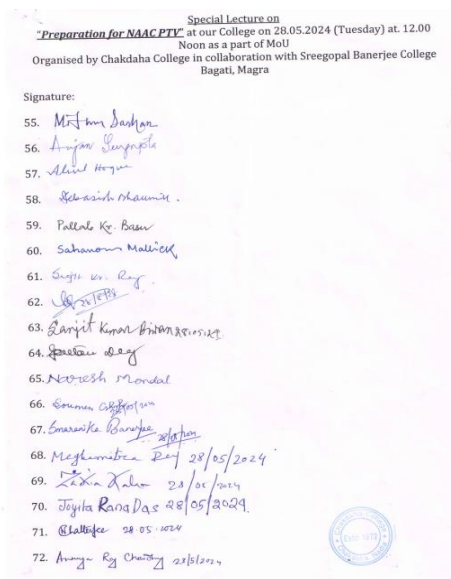 Special Lecture on
"Preparation for NAAC PTV" at our College on 28.05.2024 (Tuesday) at. 12.00
Noon as a part of MoU
Organised by Chakdaha College in collaboration with Sreegopal Banerjee College
Bagati, Magra
Signature:
55.
56. Anjan
57. Hoque
58. Debasish Bhaumik.
59. Pallab Kr. Basu
60. Sahanous Mallick
61. Sujit Kr. Ray
62.
63. Ranjit Kumar Biswas 28.05.24
64. Dey
65. Naresh Mondal
66. Soumen
67. Smaranika Banerjee 28/05/2024
68. Meghamitra Dey 28/05/2024
69. Zakia Kalam 28/05/2024
70. Joyita Rana Das 28/05/2024.
71. Chatterjee 28.05.2024
72. Ananya Roy Chowdhury 28/5/2024
Estd 1972